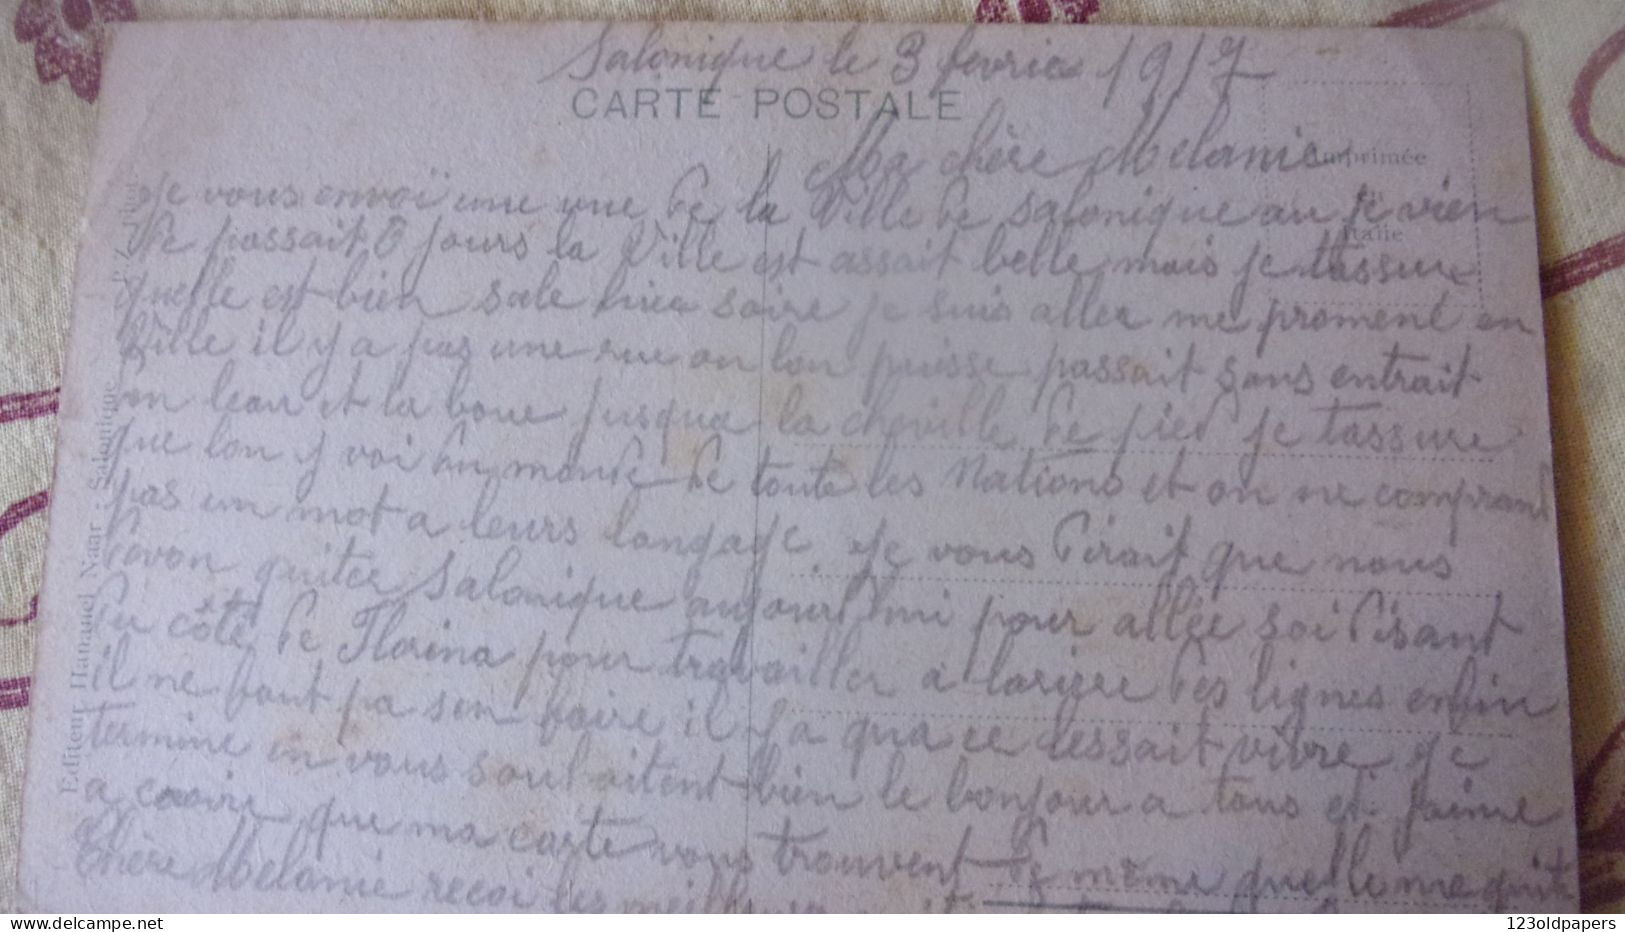 Salonique le 3 fevrier 1917
CARTE POSTALE
Ma chère Melanie
Imprimée
en
Italie
Je vous envoi une vue de la Ville de Salonique au je vien
de passait 8 jours la Ville est assait belle mais je tassure
quelle est bien sale hier soire je suis aller me promené en
Ville il y a pas une rue ou lon puisse passait sans entrait
en leau et la boue jusqua la cheville de pied je tassure
que lon y voi du monde de toute les Nations et on ne comprand
pas un mot a leurs langage. Je vous dirait que nous
avon quitée Salonique aujourdhui pour allée soi disant
du côté de Florina pour travailler a larière des lignes enfin
il ne faut pa sen faire il y a qua ce lessait vivre Je
termine en vous souhaitent bien le bonjour a tous et jaime
a croire que ma carte vous trouvent de même quelle me quite
Chère Melanie recoi les meilleurs
Editeur Hananel Naar - Salonique
P. Z. Tribot
123oldpapers